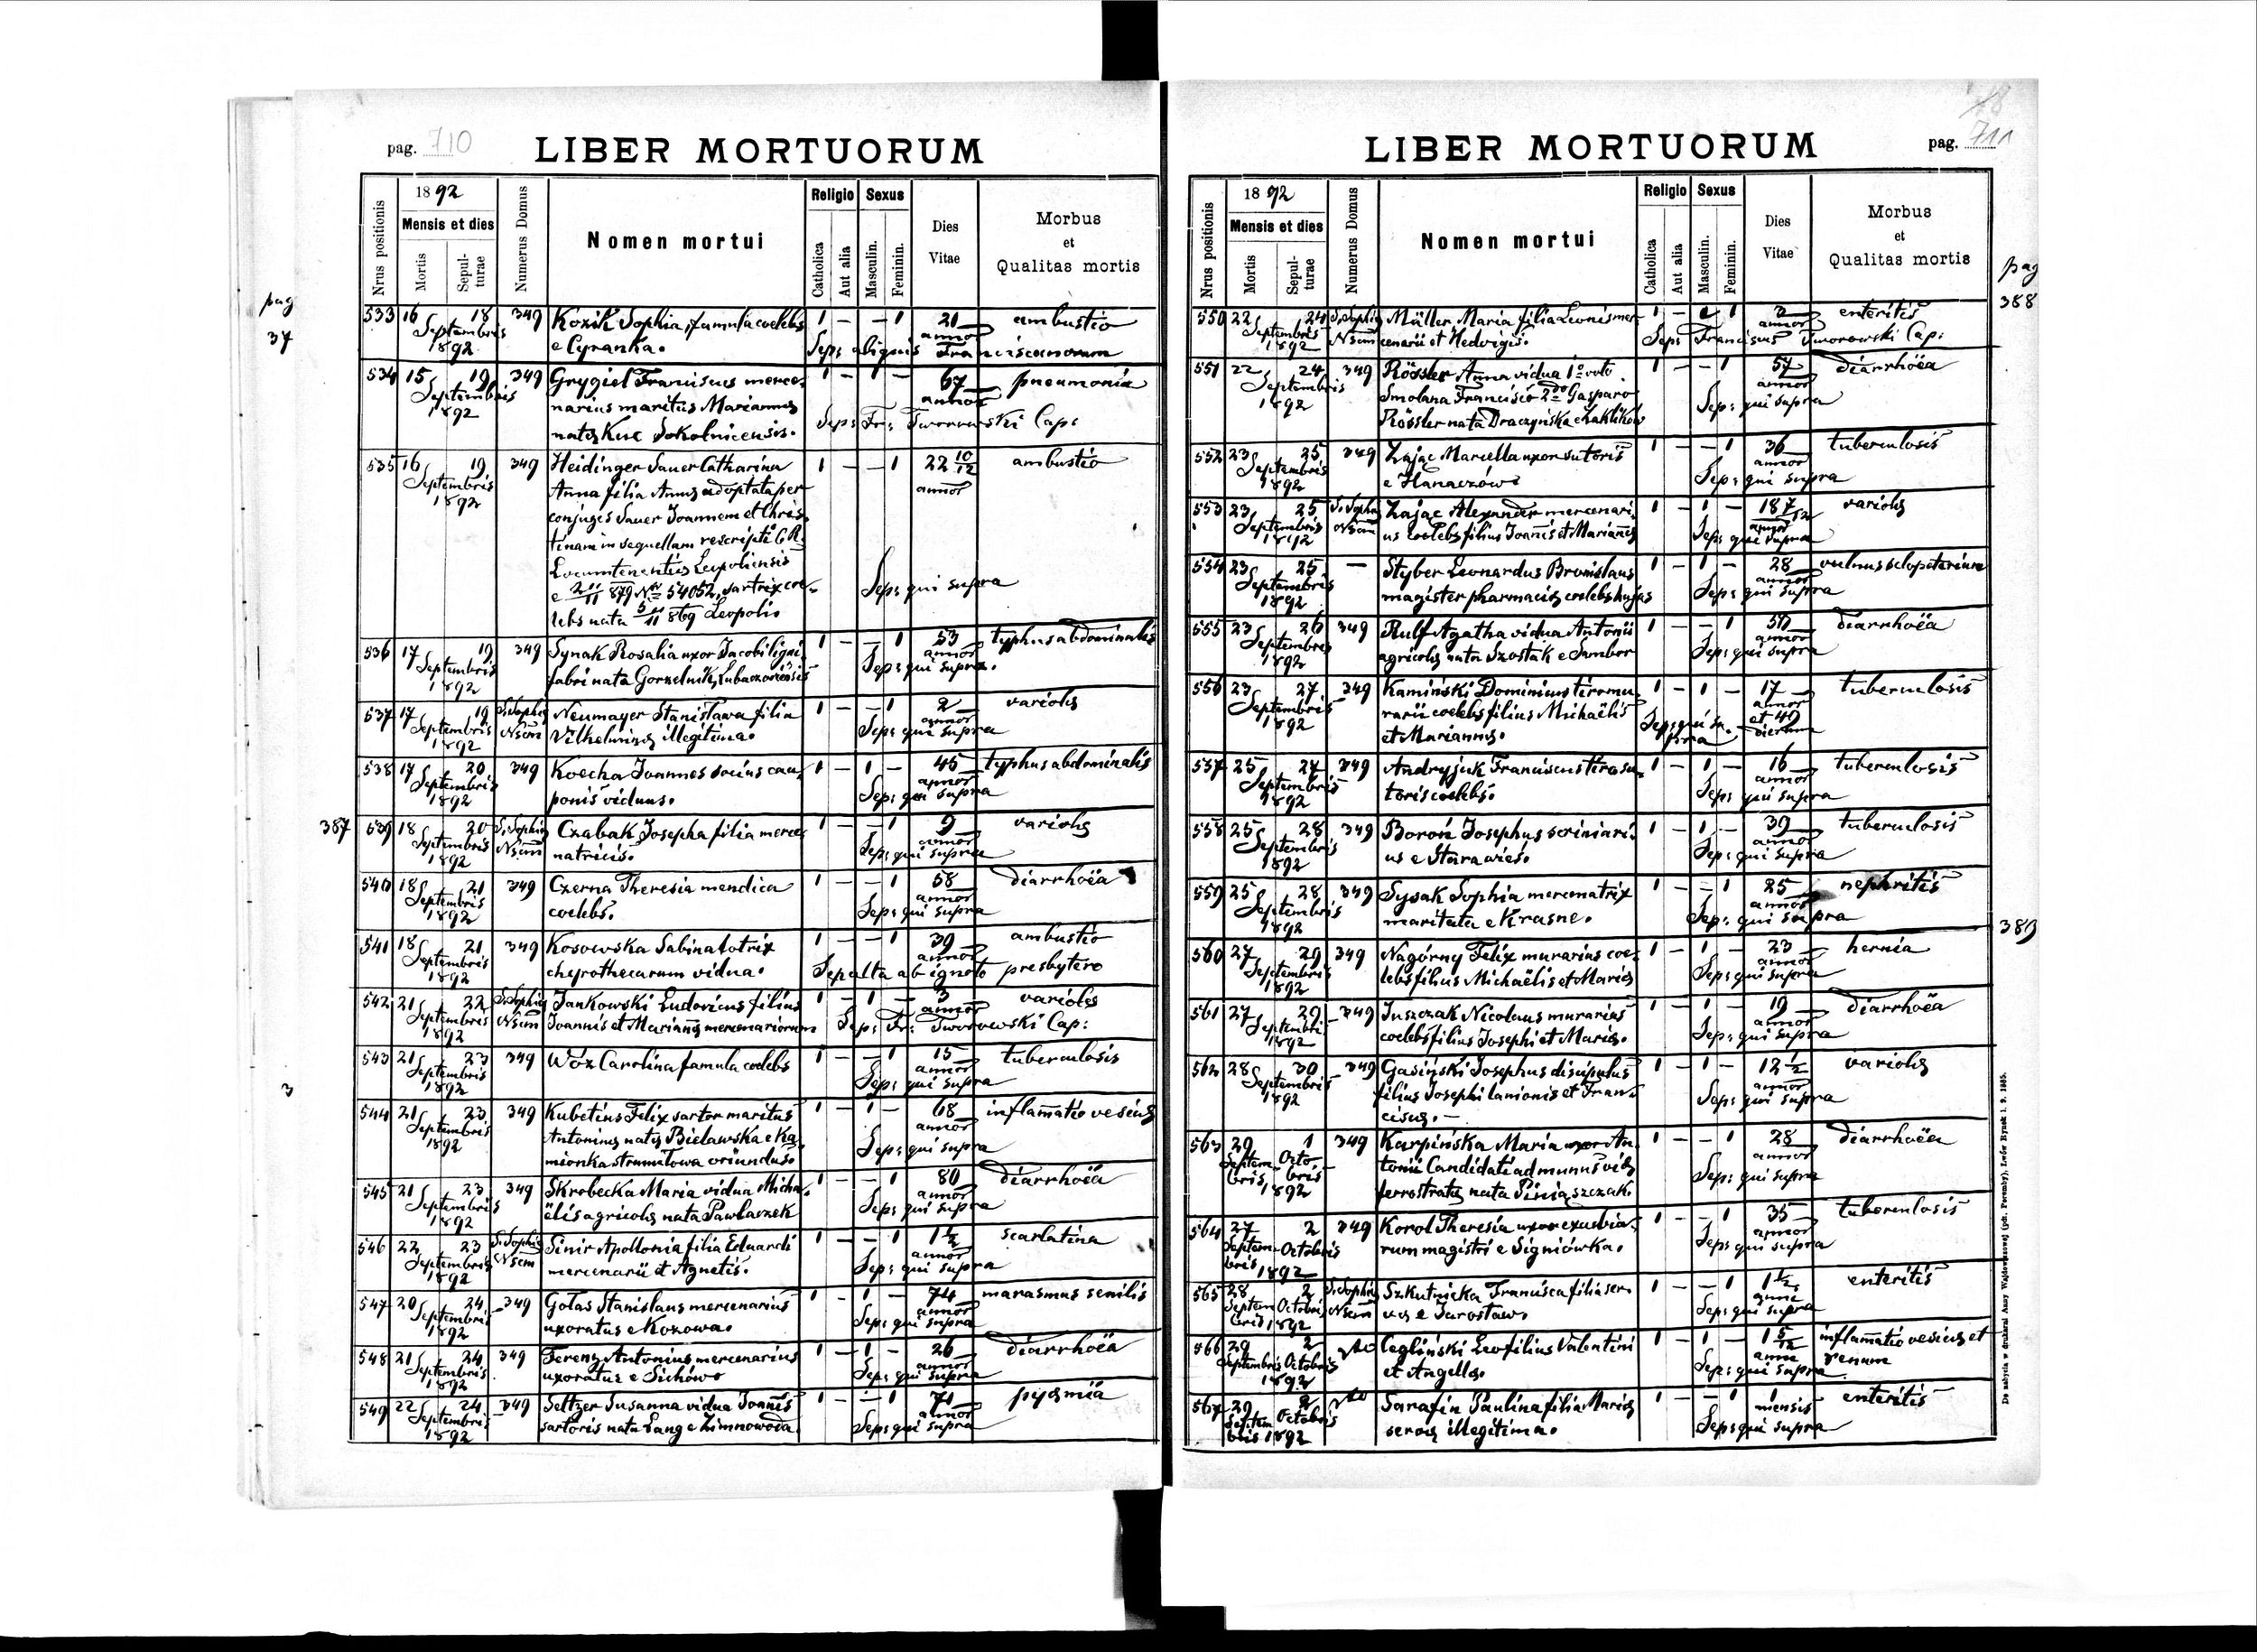 pag. 710
LIBER MORTUORUM
Nrus positionis
1892
Mensis et dies
Mortis
Sepulturae
Numerus Domus
Nomen mortui
Religio
Catholica
Aut alia
Sexus
Masculin.
Feminin.
Dies Vitae
Morbus et Qualitas mortis
pag
37
533 16 18 349 Kozik Sophia, famula coelebs 1 — — 1 21 ambustio
Septembris e Cyranka. annor
1892 Sep: aliquis Franciscanorum
534 15 19 349 Grygiel Franciscus merce- 1 — 1 — 67 pneumonia
Septembris narius maritus Mariannæ annor
1892 natæ Kuc Sokolnicensis. Sep: Fr: Tworowski Cap:
535 16 19 349 Heidinger Sauer Catharina 1 — — 1 22 10/12 ambustio
Septembris Anna filia Annæ adoptata per annor
1892 conjuges Sauer Joannem et Chris-
tinam in sequellam rescripti C.R.
Locumtenentiæ Leopoliensis
e 2/11 879 No 54052, sartrix coe- Sep: qui supra
lebs nata 5/11 869 Leopoli
536 17 19 349 Synak Rosalia uxor Jacobi ligni- 1 — — 1 53 typhus abdominalis
Septembris fabri nata Gorzelnik, Lubaczoviensis annor
1892 Sep: qui supra.
537 17 19 S. Sophiæ Neumayer Stanisława filia 1 — — 1 2 variolæ
Septembris Nsum Vilhelminæ illegitima. annor
1892 Sep: qui supra
538 17 20 349 Kocha Joannes socius cau- 1 — 1 — 45 typhus abdominalis
Septembris ponis viduus. annor
1892 Sep: qui supra
387
539 18 20 S. Sophiæ Czabak Josepha filia merce- 1 — — 1 9 variolæ
Septembris Nsum natricis. annor
1892 Sep: qui supra
540 18 21 349 Czerna Theresia mendica 1 — — 1 58 diarrhoëa
Septembris coelebs. annor
1892 Sep: qui supra
541 18 21 349 Kosowska Sabina lotrix 1 — — 1 39 ambustio
Septembris chyrothecarum vidua. annor
1892 Sepulta ab ignoto presbytero
542 21 22 S. Sophiæ Jankowski Ludovicus filius 1 — 1 — 3 variolæ
Septembris Nsum Joannis et Mariannæ mercenariorum annor
1892 Sep: Fr: Tworowski Cap:
543 21 23 349 Wóz Carolina famula coelebs 1 — — 1 15 tuberculosis
Septembris annor
1892 Sep: qui supra
3
544 21 23 349 Kubetius Felix sartor maritus 1 — 1 — 68 inflamatio vesicæ
Septembris Antoninæ natæ Bielawska e Ka- annor
1892 mionka strumiłowa oriundus. Sep: qui supra
545 21 23 349 Skrobecka Maria vidua Micha- 1 — — 1 80 diarrhoëa
Septembris ëlis agricolæ nata Pawlaczek annor
1892 Sep: qui supra
546 22 23 S. Sophiæ Sinir Apollonia filia Eduardi 1 — — 1 1½ scarlatina
Septembris Nsum mercenarii et Agnetis. annor
1892 Sep: qui supra
547 20 24 349 Gołas Stanislaus mercenarius 1 — 1 — 74 marasmus senilis
Septembris uxoratus e Kozowa. annor
1892 Sep: qui supra
548 21 24 349 Ferenz Antonius mercenarius 1 — 1 — 26 diarrhoëa
Septembris uxoratus e Sichów annor
1892 Sep: qui supra
549 22 24 349 Seltzer Susanna vidua Joannis 1 — — 1 71 pyæmia
Septembris sartoris nata Lang e Zimnowoda. annor
1892 Sep: qui supra
pag. 711
LIBER MORTUORUM
Nrus positionis
1892
Mensis et dies
Mortis
Sepulturae
Numerus Domus
Nomen mortui
Religio
Catholica
Aut alia
Sexus
Masculin.
Feminin.
Dies Vitae
Morbus et Qualitas mortis
pag
388
550 22 24 S. Sophiæ Müller Maria filia Leonis mer- 1 — 1 2 enteritis
Septembris Nsum cenarii et Hedvigis. annor
1892 Sep: Franciscus Tworowski Cap:
551 22 24 349 Rössler Anna vidua 1o voto 1 — — 1 57 diarrhoëa
Septembris Smolana Francisco 2do Gasparo annor
1892 Rössler nata Draczyńska e Zaklików Sep: qui supra
552 23 25 349 Zając Marcella uxor sutoris 1 — — 1 36 tuberculosis
Septembris e Hanaczów annor
1892 Sep: qui supra
553 23 25 S. Sophiæ Zając Alexander mercenari- 1 — 1 — 18 7/12 variolæ
Septembris Nsum us coelebs filius Joannis et Mariannæ annor
1892 Sep: qui supra
554 23 25 — Styber Leonardus Bronislaus 1 — 1 — 28 vulnus sclopetarium
Septembris magister pharmaciæ coelebs hujas annor
1892 Sep: qui supra
555 23 26 349 Rulf Agatha vidua Antonii 1 — — 1 50 diarrhoëa
Septembris agricolæ nata Szostak e Sambor annor
1892 Sep: qui supra
556 23 27 349 Kamiński Dominicus tiro mu- 1 — 1 — 17 tuberculosis
Septembris rarii coelebs filius Michaëlis annor et 49 dierum
1892 et Mariannæ. Sep: qui supra
557 25 27 349 Andryjuk Franciscus tiro su- 1 — 1 — 16 tuberculosis
Septembris toris coelebs. annor
1892 Sep: qui supra
558 25 28 349 Boroń Josephus scriniari- 1 — 1 — 39 tuberculosis
Septembris us e Stara wieś. annor
1892 Sep: qui supra
559 25 28 349 Sysak Sophia mercenatrix 1 — — 1 25 nephritis
Septembris maritata e Krasne. annor
1892 Sep: qui supra
389
560 27 29 349 Nagórny Felix murarius coe- 1 — 1 — 23 hernia
Septembris lebs filius Michaëlis et Mariæ annor
1892 Sep: qui supra
561 27 29 349 Juszczak Nicolaus murarius 1 — 1 — 19 diarrhoëa
Septembris coelebs filius Josephi et Mariæ. annor
1892 Sep: qui supra
562 28 30 349 Gasiński Josephus discipulus 1 — 1 — 12½ variolæ
Septembris filius Josephi lanionis et Fran- annor
1892 ciscæ. — Sep: qui supra
563 29 1 349 Karpińska Maria uxor An- 1 — — 1 28 diarrhoëa
Septembris Octobris tonii Candidati ad munus viæ annor
1892 ferrostratæ nata Piniąszczak. Sep: qui supra
564 27 2 349 Korol Theresia uxor excubia- 1 — — 1 35 tuberculosis
Septembris Octobris rum magistri e Signiówka. annor
1892 Sep: qui supra
565 28 2 S. Sophiæ Szkutnicka Francisca filia ser- 1 — — 1 1½ enteritis
Septembris Octobris Nsum væ e Jarosław. anni
1892 Sep: qui supra
566 29 2 Cegliński Leo filius Valentini 1 — 1 — 1 5/12 inflamatio vesicæ et
Septembris Octobris et Angellæ. anni renum
1892 Sep: qui supra
567 29 2 Sarafin Paulina filia Mariæ 1 — — 1 1 enteritis
Septembris Octobris servæ illegitima. mensis
1892 Sep: qui supra